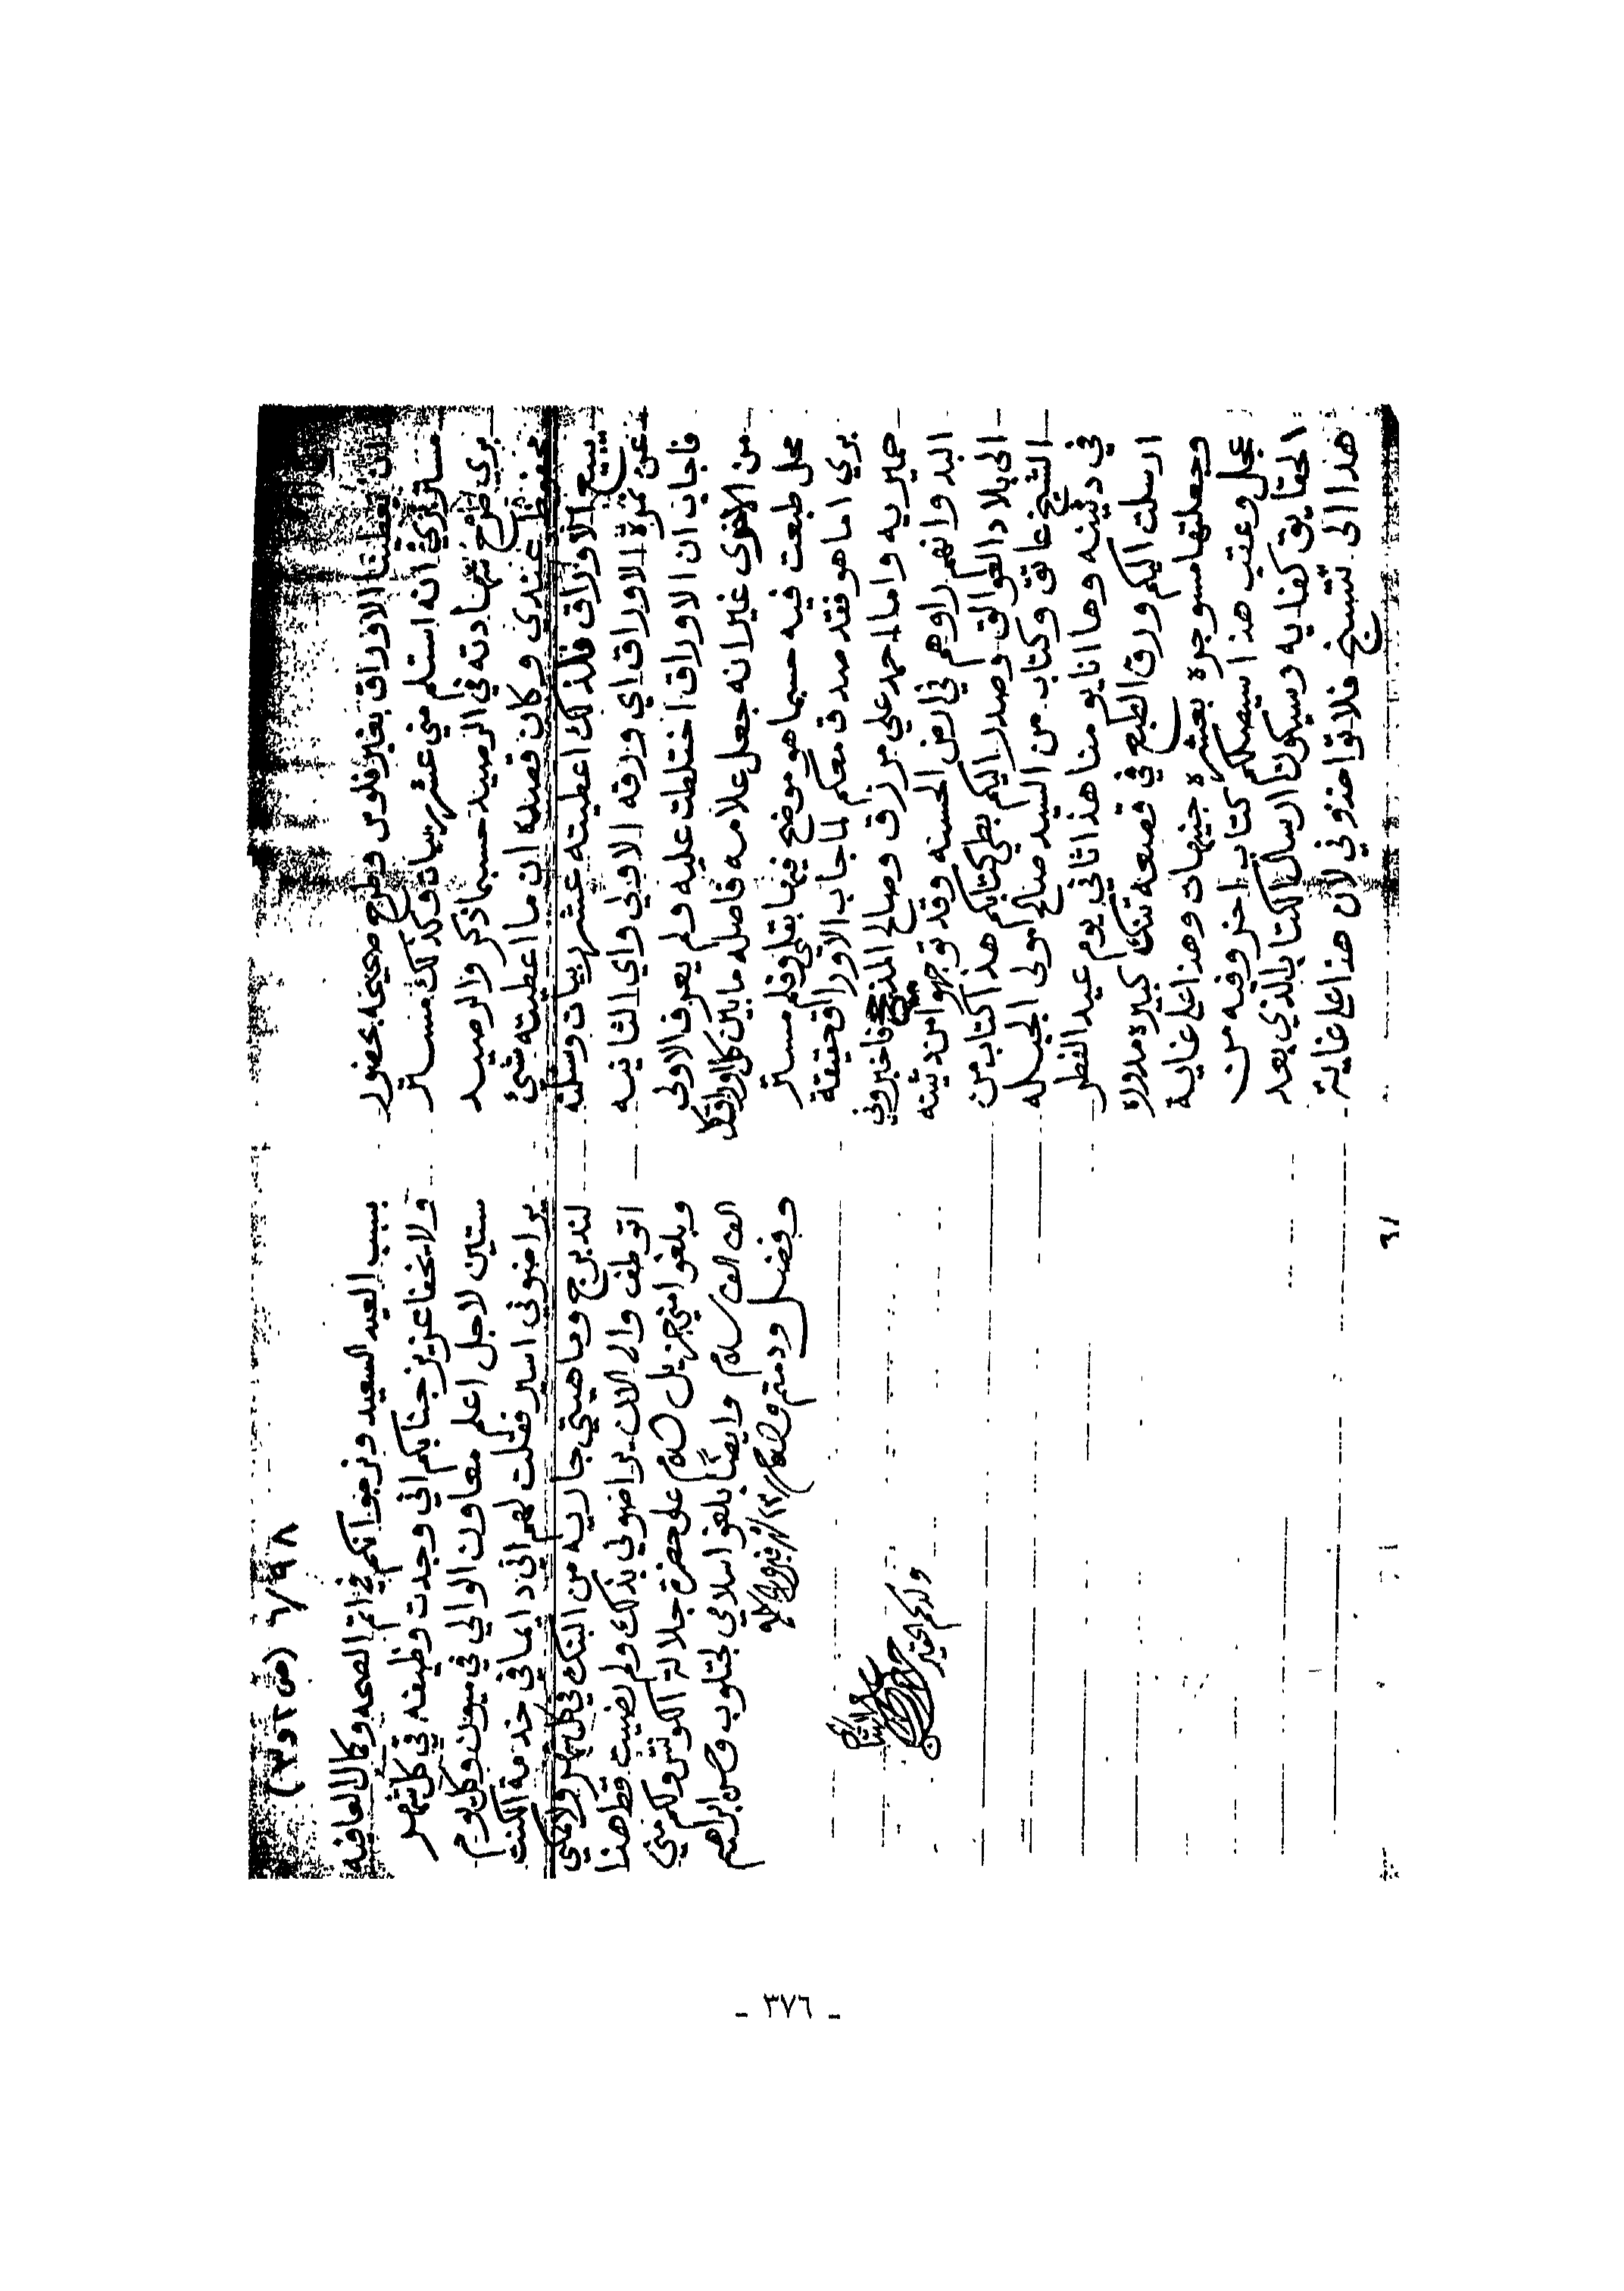 ان يعطينا الاوراق بغير فلوس وطرح صحيحه بحضور
مستر بري انه استلم مني عشر ربيات وكذلك مستر
بري طرح شهادته في الرصيد حسبما ذكر والرصيد
محفوظ عندي وكان قصده ان ما اعطيته شئ
يبيع الاوراق فلذلك اعطيته عشر ربيات وسلته
عن نمرة الاوراق اي ورقه الاولى واي الثانيه
فاجاب ان الاوراق اختلطت عليه ولم يعرف الاولى
من الاخرى غير انه جعل علامه فاصله مابين كل اوراق كل
محل طبعت فيه حسبما هو موضح فيها بقلمي وقلم مستر
بري اما هو فقد صدق معكم لما جاب الاوراق حقيقة
حميريه واما احمد علي مرزاق وصالح المذحج فاخبروني
البدو انهم راوهم في ارض الحسنه وقد توجهوا من دثينه
الى بلاد العوالق وصدر اليكم بطي كتابكم هذا كتاب من
الشيخ عاتق وكتاب من السيد صالح امولى الجبله
في دثينه وها انا يومنا هذا ثاني يوم عيد الفطر
ارسلت اليكم ورق الطبع في قصعه تنك كبيره مدوره
وجعلتها مسوجره بعشره جنيهات وهذا على غاية
عجل وعقب هذا سيصلكم كتاب اخر وفيه من
الحقايق كفايه وسيكون ارسال الكتاب الذي بعد
هذا الى تتنسخ فلا تواخذوني لان هذا على غاية
(ص ٢ و ٣) ٦/٩٨
بسبب العيد السعيد ونرجوا انكم في اتم الصحه وكمال العافيه
ولا يخفا عزيز جنابكم اني وجدت وظيفه في كل شهر
ستين لاجل اعلم معاون الوالي في ميون وكل يوم
يراضوني اسير فقلت لهم اني دايما في خدمة الكنت
لندبرج وماهيتي جاريه من البنك في كل شهر ولا يمكني
اتوظف والى الان يراضوني بذلك ولم رضيت قط هذا
وبلغوا مني جزيل السلام على حضرة جلالة الكونتس ولكم مني
الف الف سلام وايضًا بلغوا سلامي لجتلوب وحسن ابراهيم
وفضل ودمتم
ولدكم الحقير
٦١
- ٣٧٦ -